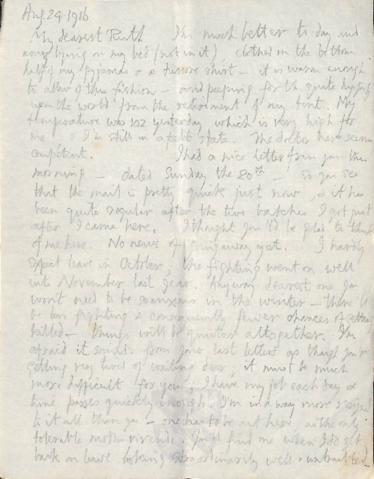 Aug 24 1916
My dearest Ruth I'm much better to day and
am lying on my bed (not in it), clothed on the bottom
half of my pyjamas & a shirt – it is warm enough
to allow of this fashion – and peeping for the quite
upon the world from the retirement of my tent. My
temperature was 102 yesterday which is very high for
me & I'm still in a state. The doctor here seems
competent. I had a nice letter from you this
morning – dated Sunday the 20th, so you see
that the mail is pretty quick just now, & it has
been quite regular after the two batches I got just
after I came here. I thought you'd be glad to think
of me here. No news of going away yet. I hardly
expect leave in October, the fighting went on well
into November last year. Anyway dearest one you
won't need to be anxious in the winter – there'll
be less fighting & consequently fewer chances of
killed – things will be quieter altogether. I'm
afraid it sounds from your last letters as though you're
getting very tired of waiting dear, it must be much
more difficult for you – I have my job each day &
time passes quickly enough. I'm in a way more
to it all than you – one has to be out here, as the only
tolerable modus vivendi. You'd find me when I do get
back on leave looking extraordinarily well &